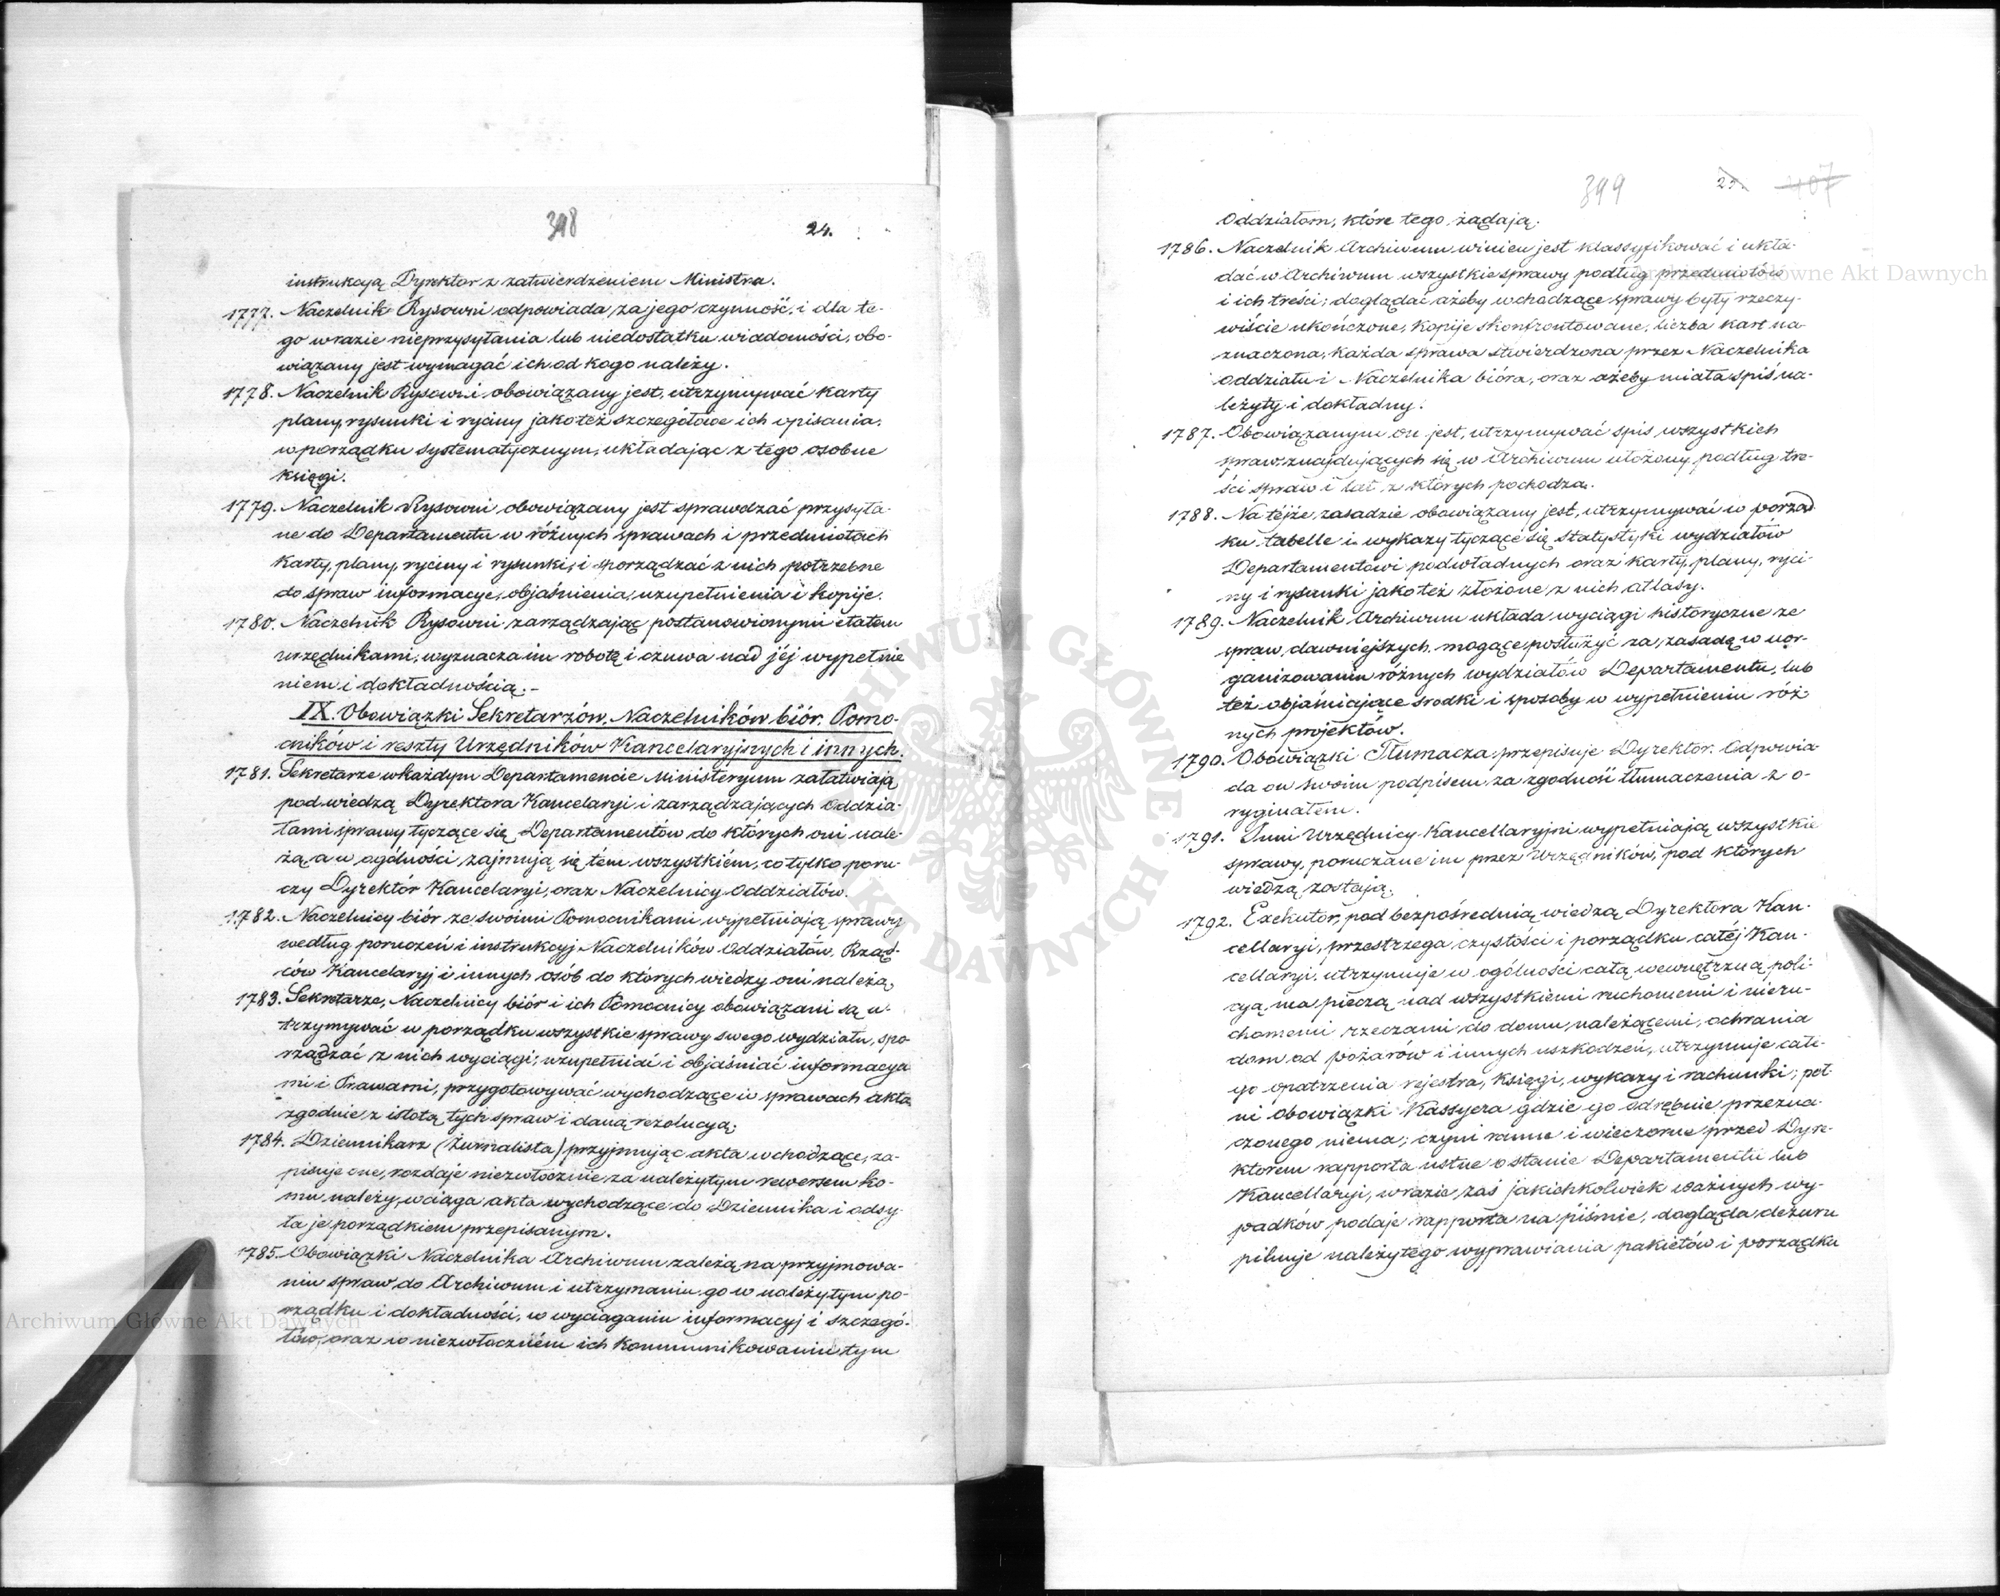 398
24.
instrukcyą Dyrektor z zatwierdzeniem Ministra.
1777. Naczelnik Rysowni odpowiada za jego czynność, i dla te-
go w razie nieprzysyłania lub niedostatku wiadomości, obo-
wiązany jest wymagać ich od kogo należy.
1778. Naczelnik Rysowni obowiązany jest, utrzymywać karty
plany, rysunki i ryciny jako też szczegółowe ich opisania,
w porządku systematycznym, układając z tego osobne
księgi.
1779. Naczelnik Rysowni, obowiązany jest sprawdzać przysyła-
ne do Departamentu w różnych sprawach i przedmiotach
karty, plany, ryciny i rysunki, i sporządzać z nich potrzebne
do spraw informacye, objaśnienia, uzupełnienia i kopije.
1780. Naczelnik Rysowni zarządzając postanowionymi etatem
urzędnikami, wyznacza im robotę i czuwa nad jéj wypełnie
niem i dokładnością.-
IX. Obowiązki Sekretarzów, Naczelników biór, Pomo-
cników i reszty Urzędników Kancelaryjnych i innych.
1781. Sekretarze w każdym Departamencie Ministeryum załatwiają
pod wiedzą Dyrektora Kancelaryi i zarządzających Oddzia-
łami sprawy tyczące się Departamentów do których oni nale-
żą, a w ogólności zajmują się tém wszystkiém, co tylko poru-
czy Dyrektór Kancelaryi, oraz Naczelnicy Oddziałów.
1782. Naczelnicy biór ze swoimi Pomocnikami wypełniają sprawy
według poruczeń i instrukcyj Naczelników Oddziałów, Rząd-
ców Kancelaryj i innych osób do których wiedzy oni należą,
1783. Sekretarze, Naczelnicy biór i ich Pomocnicy obowiązani są u-
trzymywać w porządku wszystkie sprawy swego wydziału, spo-
rządzać z nich wyciągi; uzupełniać i objaśniać informacya
mi i Prawami, przygotowywać wychodzące w sprawach akta,
zgodnie z istotą tych spraw i daną rezolucyą;
1784. Dziennikarz (Żurnalista) przyjmując akta wchodzące, za-
pisuje one, rozdaje niezwłocznie za należytym rewersem ko-
mu należy, wciąga akta wychodzące do Dziennika i odsy-
ła je porządkiem przepisanym.
1785. Obowiązki Naczelnika Archiwum zależą na przyjmowa-
niu spraw do Archiwum i utrzymaniu go w należytym po-
rządku i dokładności, w wyciąganiu informacyj i szczegó-
łów, oraz w niezwłoczném ich kommunikowaniu tym
399
25.
407
Oddziałom, które tego żądają.
1786. Naczelnik Archiwum winien jest klassyfikować i ukła-
dać w Archiwum wszystkie sprawy podług przedmiotów
i ich treści; doglądać ażeby wchodzące sprawy były rzeczy-
wiście ukończone, kopije skonfrontowane, liczba kart na-
znaczona, każda sprawa stwierdzona przez Naczelnika
Oddziału i Naczelnika bióra, oraz ażeby miała spis na-
leżyty i dokładny.
1787. Obowiązanym on jest, utrzymywać spis wszystkich
spraw znajdujących się w Archiwum ułożony podług tre-
ści spraw i lat z których pochodzą.
1788. Na téjże zasadzie obowiązany jest, utrzymywać w porząd
ku tabelle i wykazy tyczące się statystyki wydziałów
Departamentowi podwładnych oraz karty, plany, ryci-
ny i rysunki jako też złożone z nich atlasy.
1789. Naczelnik Archiwum układa wyciągi historyczne ze
spraw dawniejszych mogące posłużyć za zasadę w uor-
ganizowaniu różnych wydziałów Departamentu, lub
też objaśniające środki i sposoby w wypełnieniu róż-
nych projektów.
1790. Obowiązki Tłumacza przepisuje Dyrektor. Odpowia-
da on swoim podpisem za zgodność tłumaczenia z o-
ryginałem.
1791. Inni Urzędnicy Kancellaryjni wypełniają wszystkie
sprawy, poruczane im przez Urzędników, pod których
wiedzą zostają.
1792. Exekutor, pod bezpośrednią wiedzą Dyrektora Kan-
cellaryi, przestrzega czystości i porządku całéj Kan-
cellaryi, utrzymuje w ogólności całą wewnętrzną poli-
cyą, ma pieczą nad wszystkiemi ruchomemi i nieru-
chomemi rzeczami do domu należącemi, ochrania
dom od pożarów i innych uszkodzeń, utrzymuje całe-
go opatrzenia rejestra, księgi, wykazy i rachunki; peł-
ni obowiązki Kassyera gdzie go odrębnie przezna-
czonego niema; czyni ranne i wieczorne przed Dyre-
ktorem rapporta ustne o stanie Departamentu lub
Kancellaryi, w razie zaś jakichkolwiek ważnych wy-
padków podaje rapporta na piśmie, dogląda dežuru
pilnuje należytego wyprawiania pakietów i porządku
Archiwum Główne Akt Dawnych
Archiwum Główne Akt Dawnych
ARCHIWUM GŁÓWNE AKT DAWNYCH